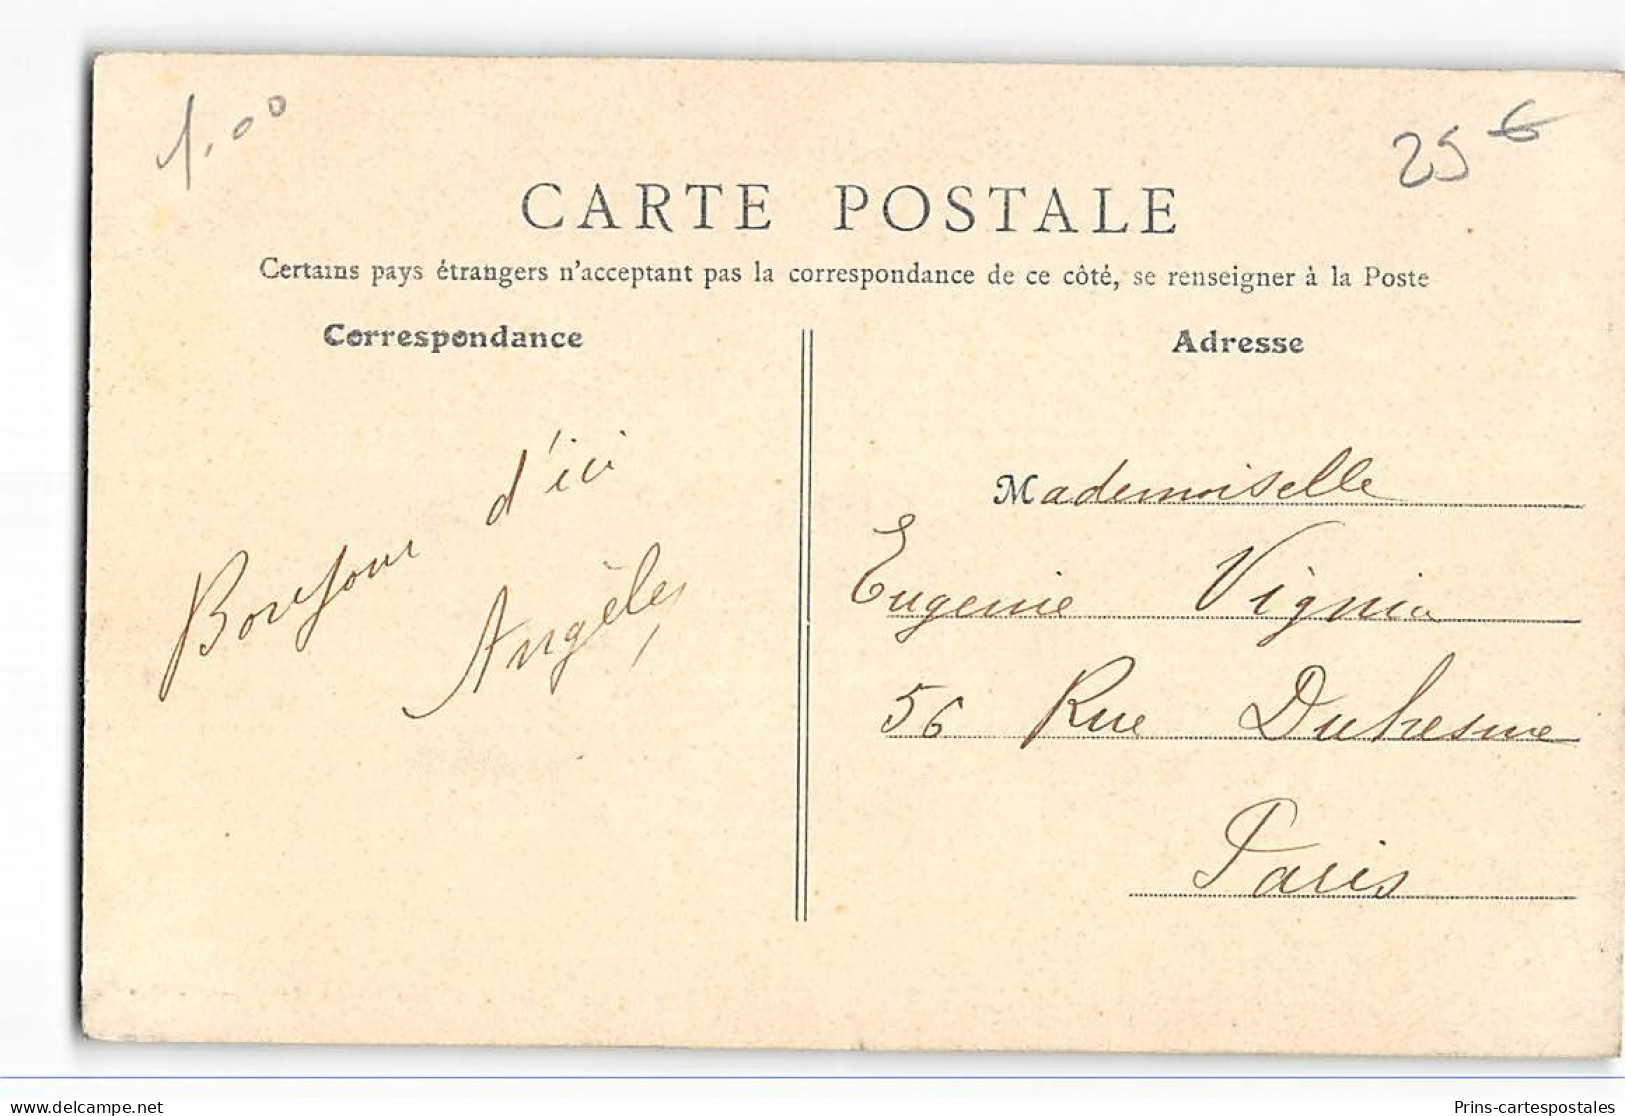 1.00
25 €
CARTE POSTALE
Certains pays étrangers n'acceptant pas la correspondance de ce côté, se renseigner à la Poste
Correspondance
Adresse
Bonjour d'ici
Angèle
Mademoiselle
Eugenie
56 Rue Duhesme
Paris
Prins-cartespostales
delcampe.net